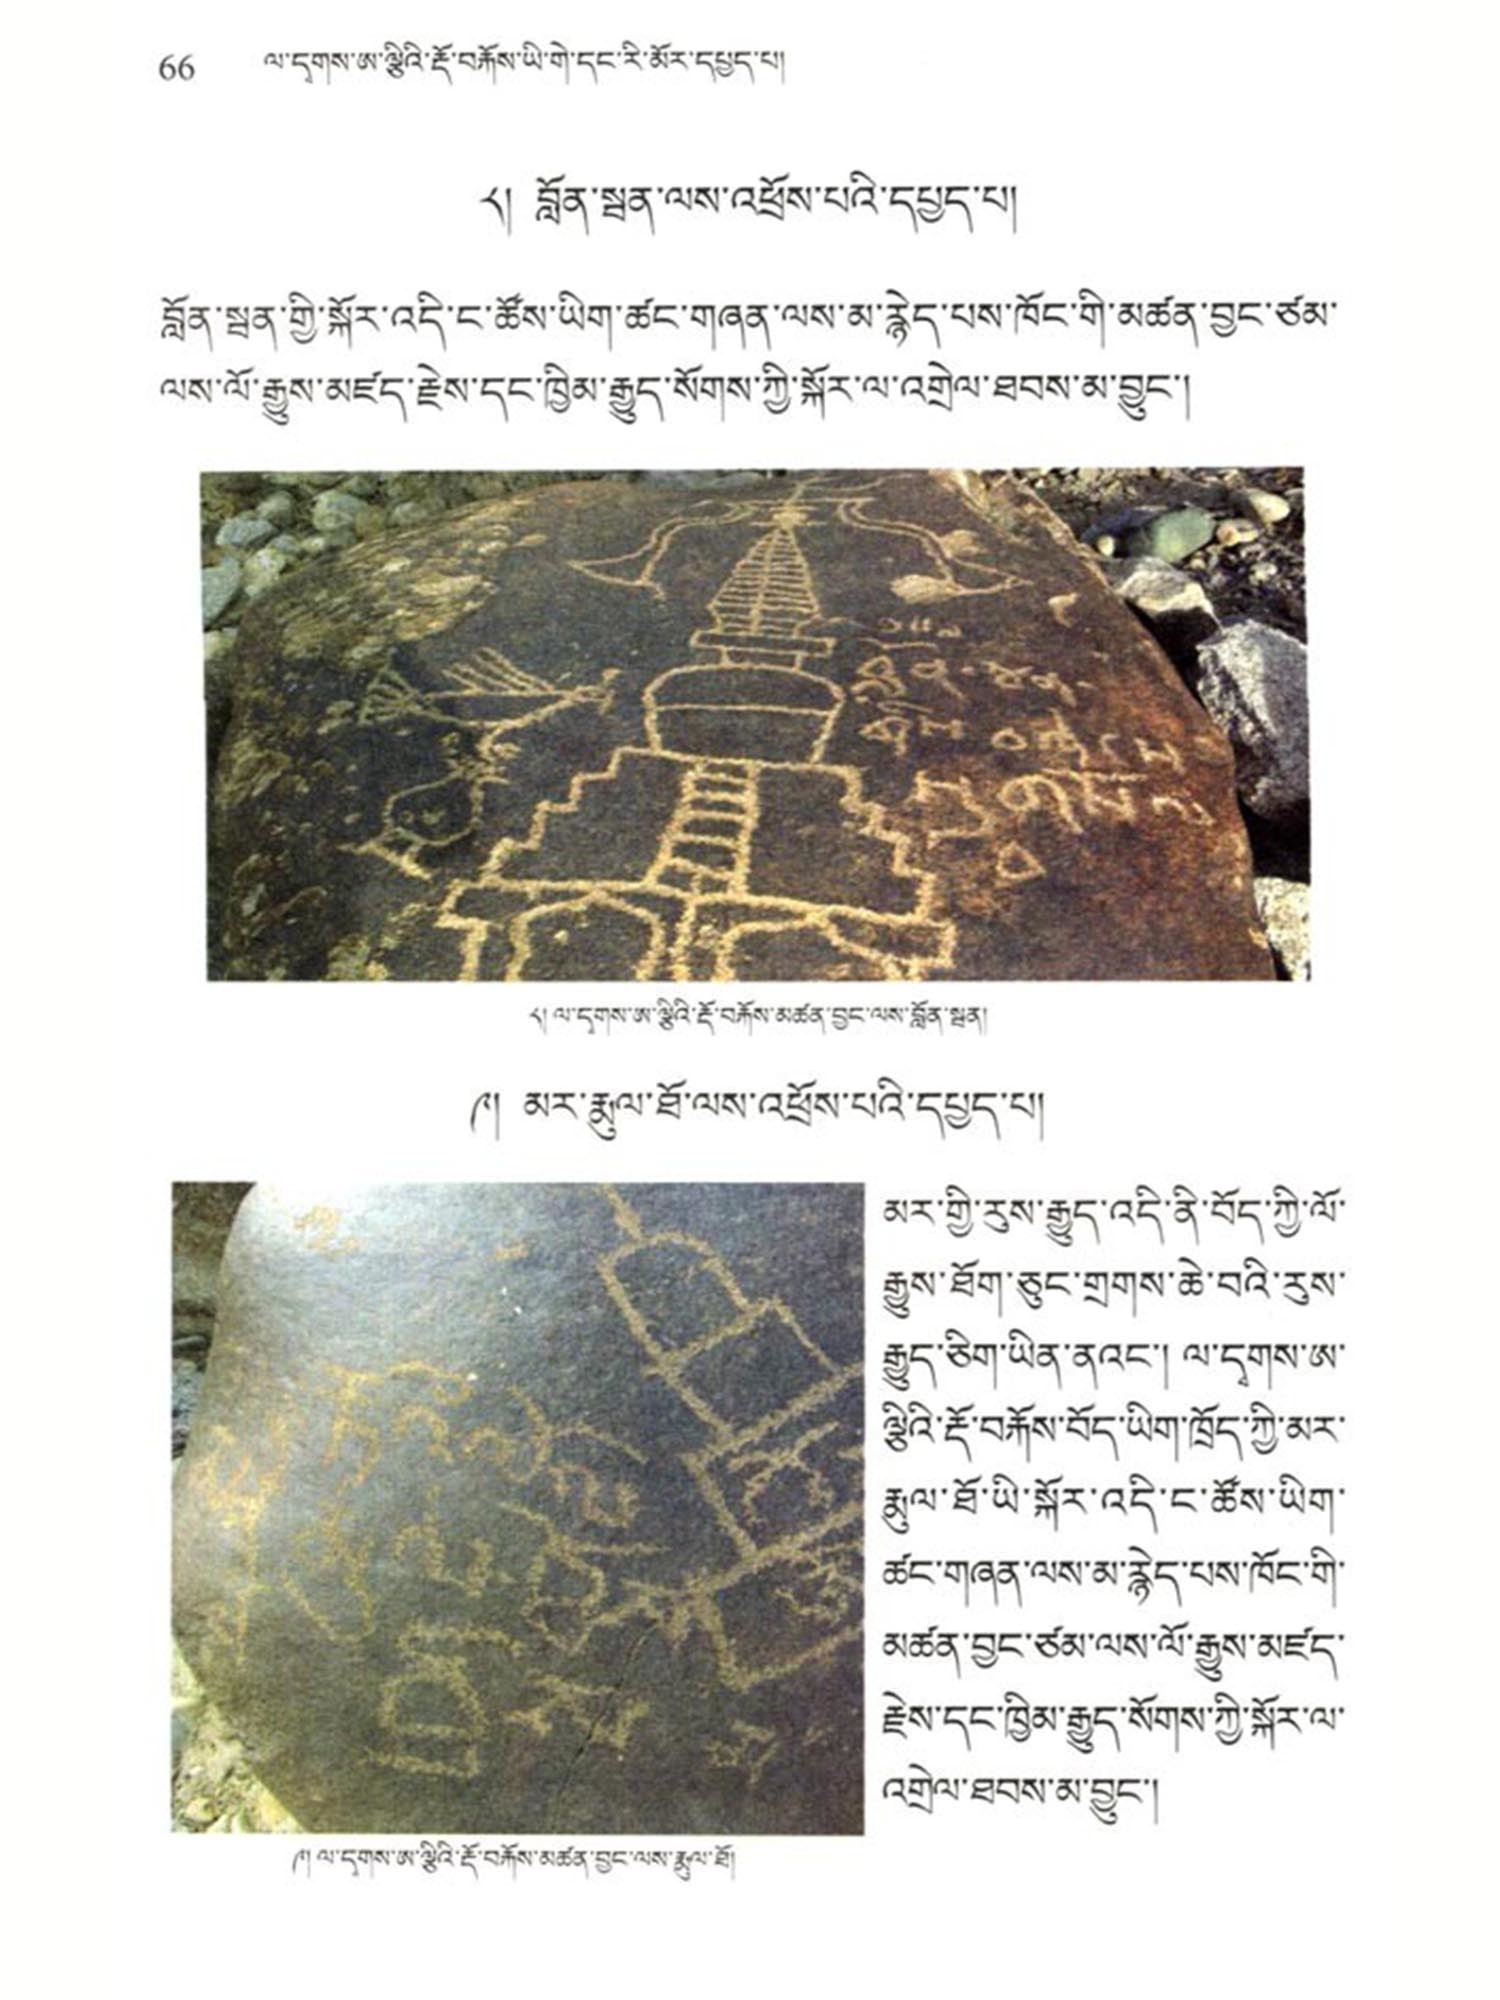 66 ལ་དྭགས་ཨ་ལྕིའི་རྡོ་བརྐོས་ཡི་གེ་དང་རི་མོར་དཔྱད་པ།
༨། བློན་སྦན་ལས་འཕྲོས་པའི་དཔྱད་པ།
བློན་སྦན་གྱི་སྐོར་འདི་ང་ཚོས་ཡིག་ཚང་གཞན་ལས་མ་རྙེད་པས་ཁོང་གི་མཚན་བྱང་ཙམ་
ལས་ལོ་རྒྱུས་མཛད་རྗེས་དང་ཁྱིམ་རྒྱུད་སོགས་ཀྱི་སྐོར་ལ་འགྲེལ་ཐབས་མ་བྱུང་།
༨། ལ་དྭགས་ཨ་ལྕིའི་རྡོ་བརྐོས་མཚན་བྱང་ལས་བློན་སྦན།
༩། མར་རྨུལ་ཐོ་ལས་འཕྲོས་པའི་དཔྱད་པ།
མར་གྱི་རུས་རྒྱུད་འདི་ནི་བོད་ཀྱི་ལོ་
རྒྱུས་ཐོག་ཅུང་གྲགས་ཆེ་བའི་རུས་
རྒྱུད་ཅིག་ཡིན་ནའང་། ལ་དྭགས་ཨ་
ལྕིའི་རྡོ་བརྐོས་བོད་ཡིག་ཁྲོད་ཀྱི་མར་
རྨུལ་ཐོ་ཡི་སྐོར་འདི་ང་ཚོས་ཡིག་
ཚང་གཞན་ལས་མ་རྙེད་པས་ཁོང་གི་
མཚན་བྱང་ཙམ་ལས་ལོ་རྒྱུས་མཛད་
རྗེས་དང་ཁྱིམ་རྒྱུད་སོགས་ཀྱི་སྐོར་ལ་
འགྲེལ་ཐབས་མ་བྱུང་།
༩། ལ་དྭགས་ཨ་ལྕིའི་རྡོ་བརྐོས་མཚན་བྱང་ལས་རྨུལ་ཐོ།